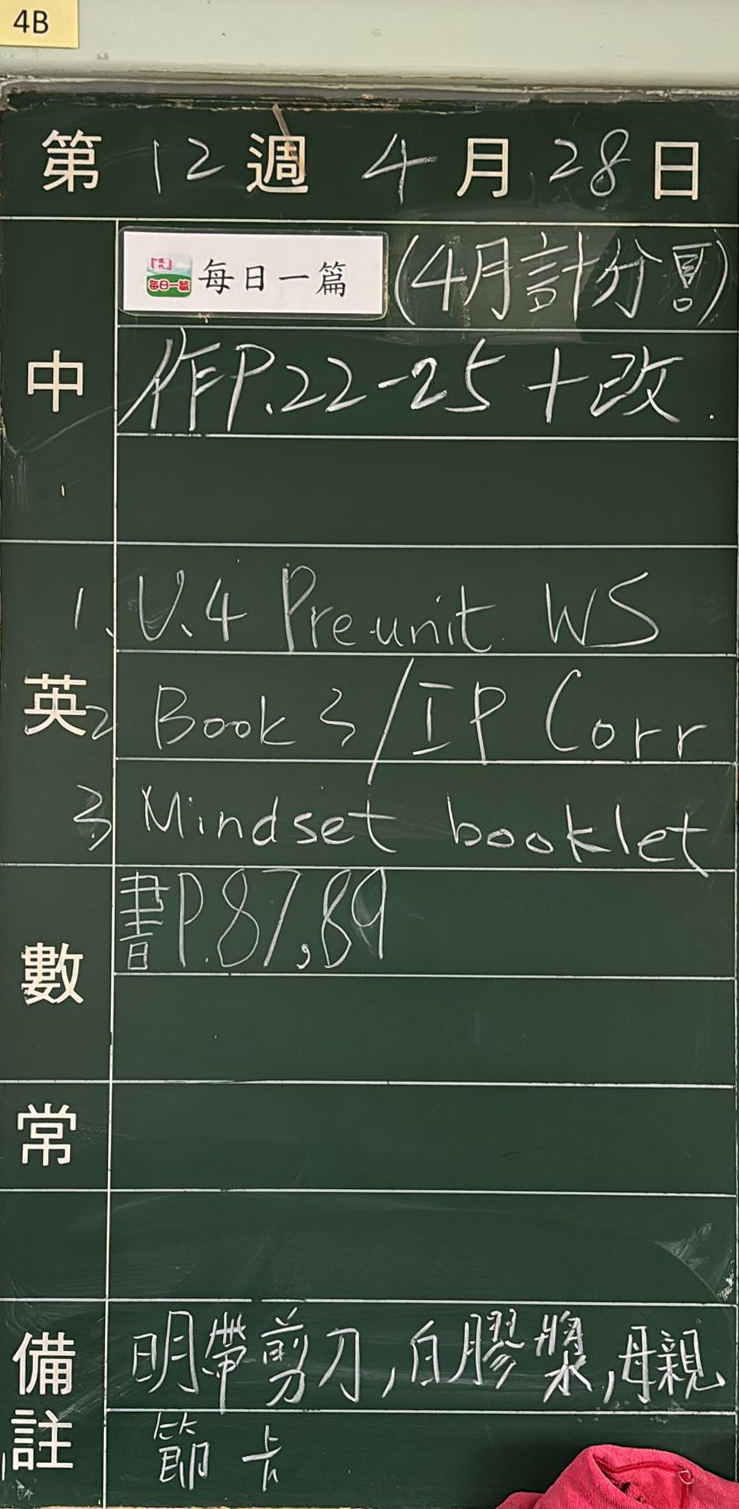 4B
第 12 週 4 月 28 日
中
每日一篇 每日一篇 (4月計分!)
作P.22-25+改.
英
1. U.4 Pre-unit WS
2 Book 3/IP Corr
3 Mindset booklet
數
書P.87,89
常
備註
明帶剪刀,白膠漿,母親
節卡